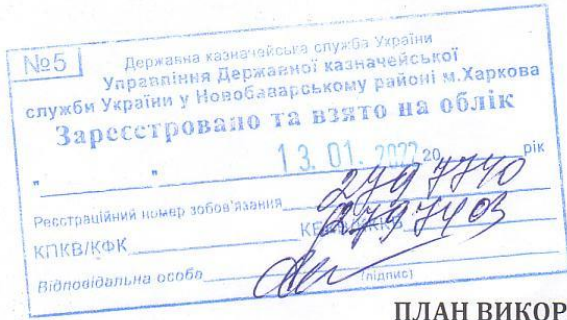 №5
Державна казначейська служба України
Управління Державної казначейської
служби України у Новобаварському районі м.Харкова
Зареєстровано та взято на облік
" " 13. 01. 2022 20 рік
Реєстраційний номер зобов'язання
КПКВ/КФК
Відповідальна особа
(підпис)
ПЛАН ВИКОР